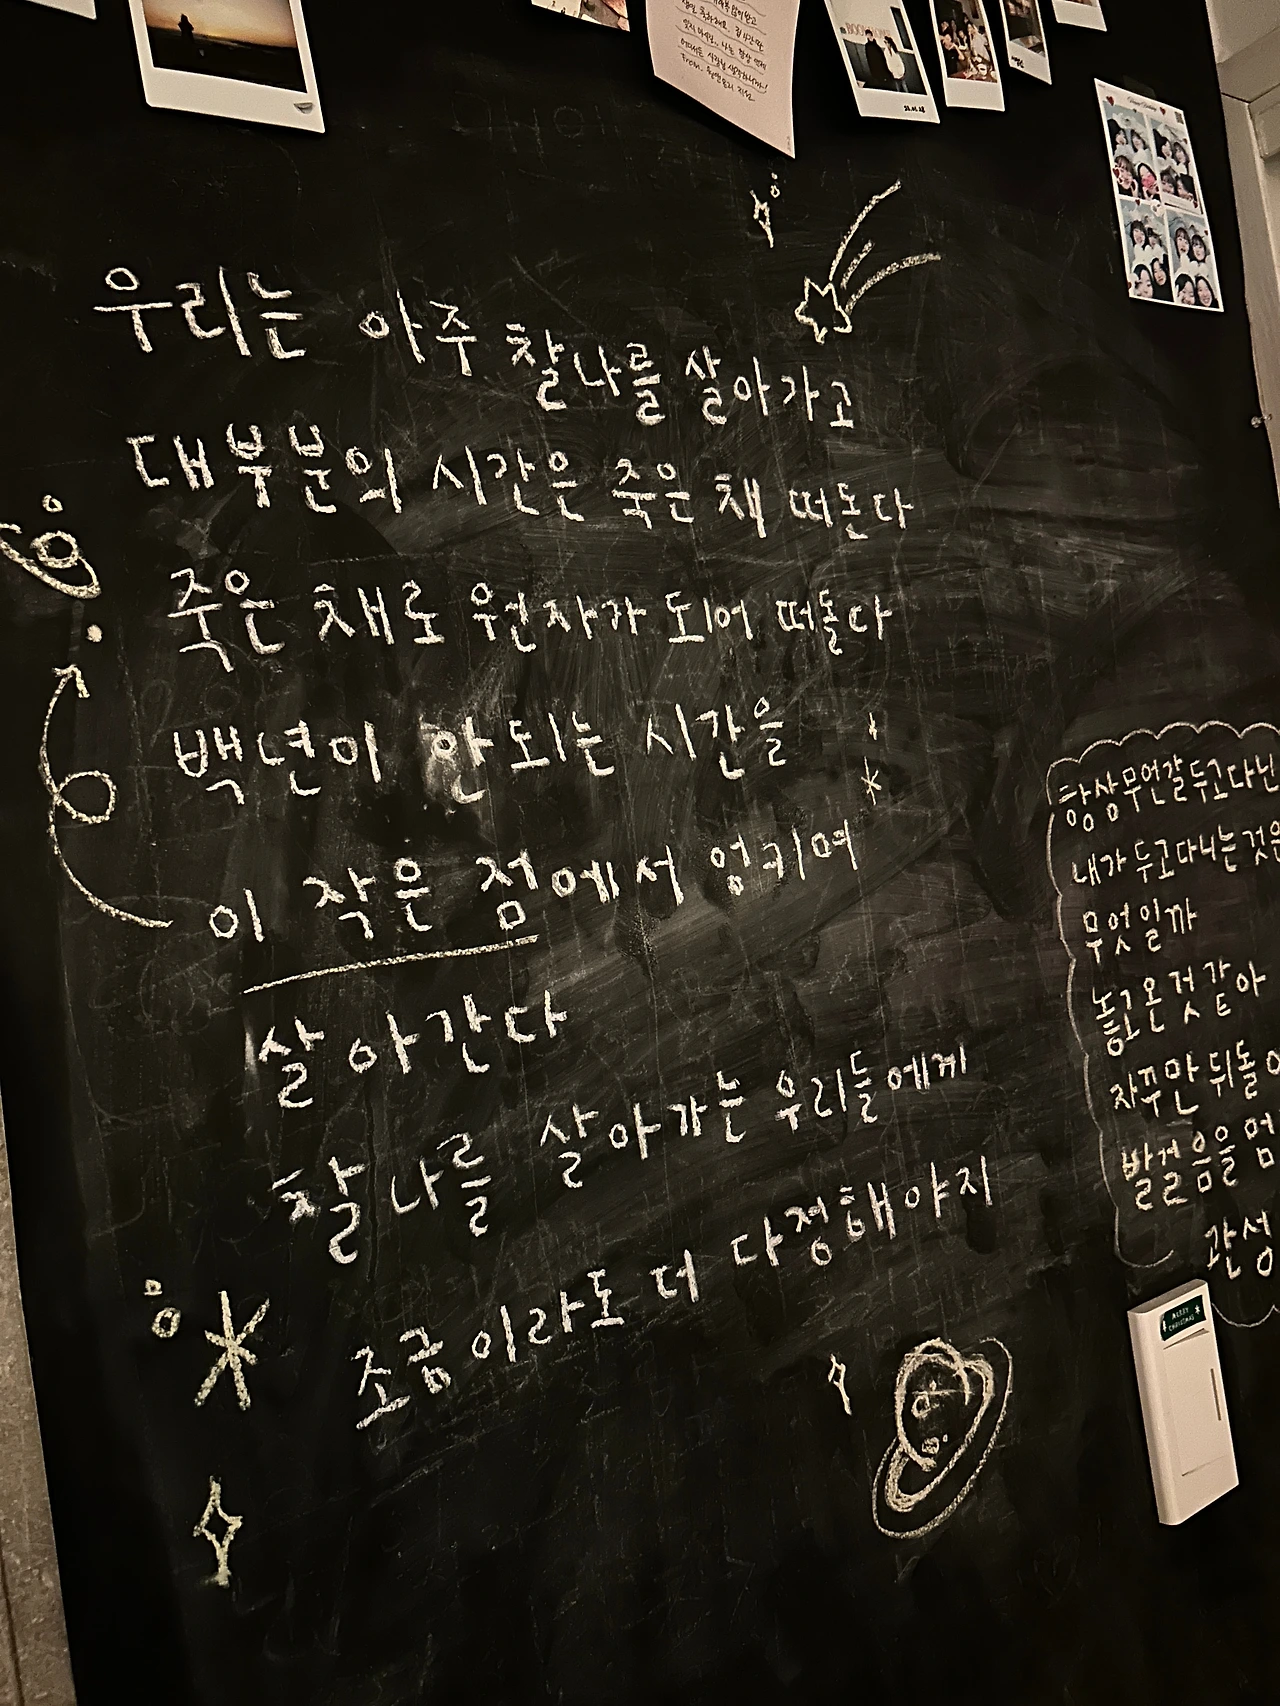 우리는 아주 찰나를 살아가고
대부분의 시간은 죽은 채 떠돈다
죽은 채로 원자가 되어 떠돌다
백년이 안되는 시간을
이 작은 점에서 엉키며
살아간다
찰나를 살아가는 우리들에게
조금이라도 더 다정해야지
항상 무언갈 두고다닌
내가 두고다니는 것은
무엇일까
놓고온 것 같아
자꾸만 뒤돌아
발걸음을 멈
관성
MERRY
CHRISTMAS